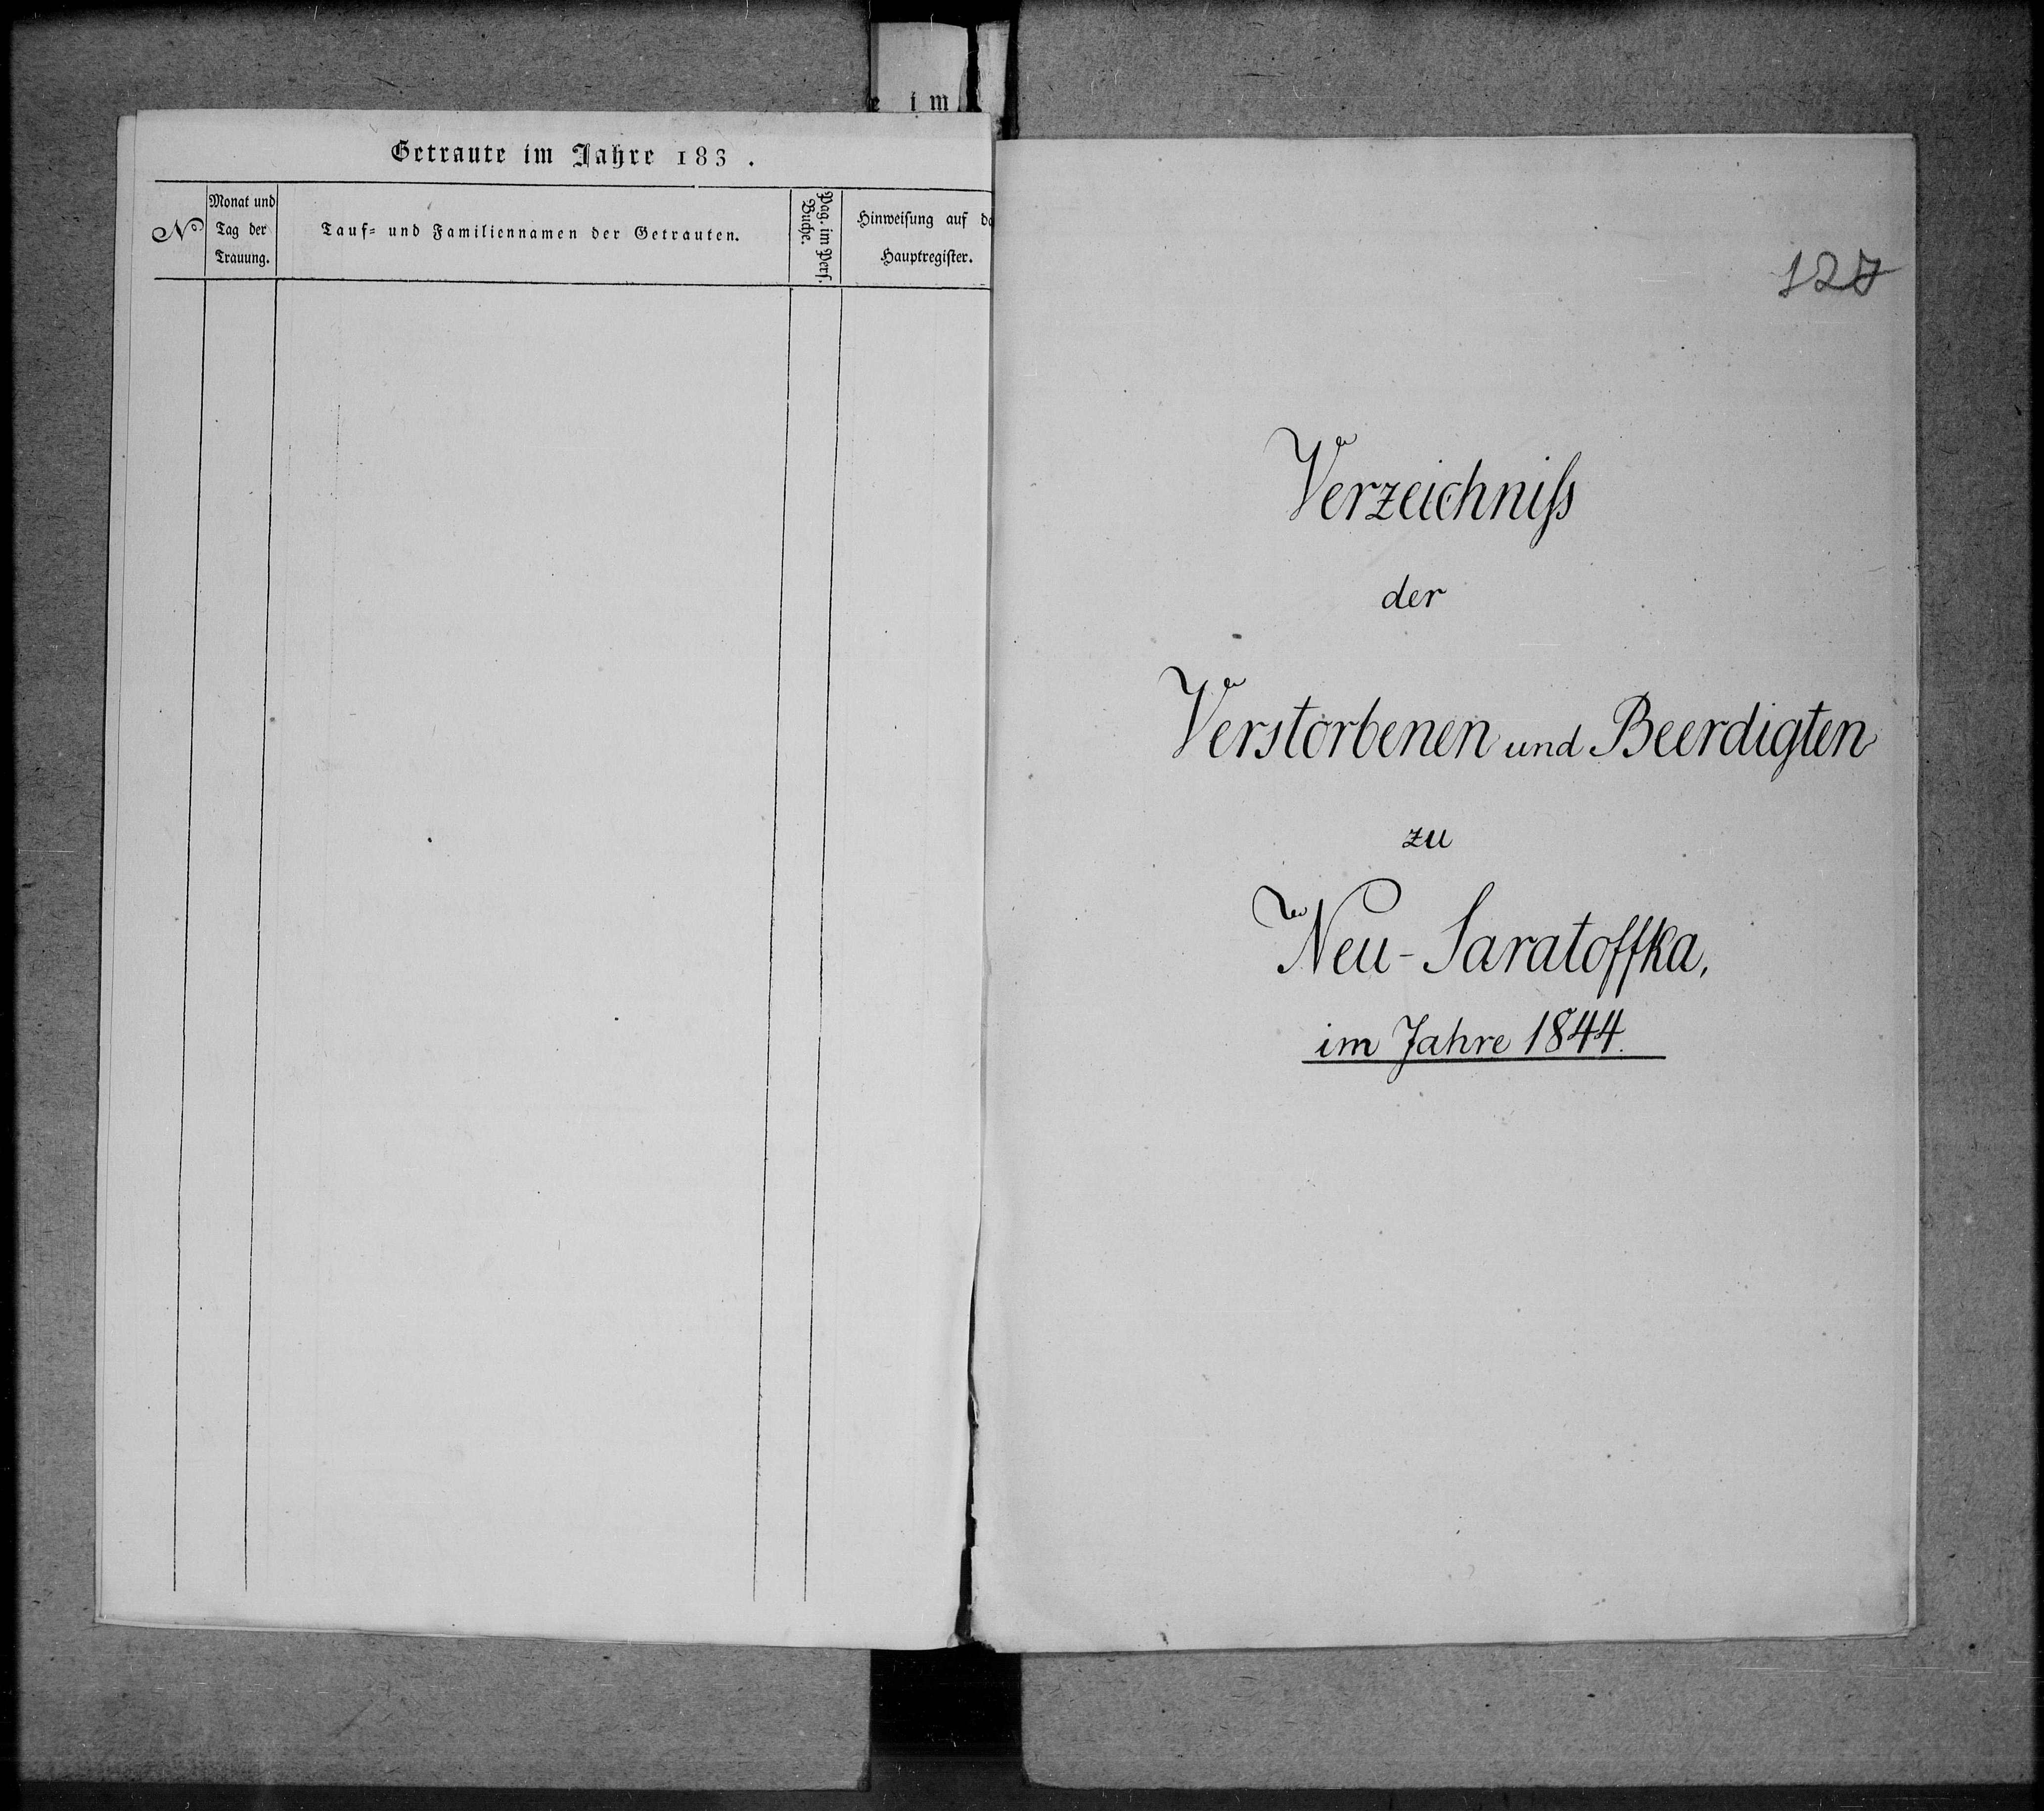 e im
Getraute im Jahre 183 .
No
Monat und
Tag der
Trauung.
Tauf- und Familiennamen der Getrauten.
Pag. im Pers.
Buche.
Hinweisung auf da
Hauptregister.
127
Verzeichniss
der
Verstorbenen und Beerdigten
zu
Neu-Saratoffka,
im Jahre 1844.